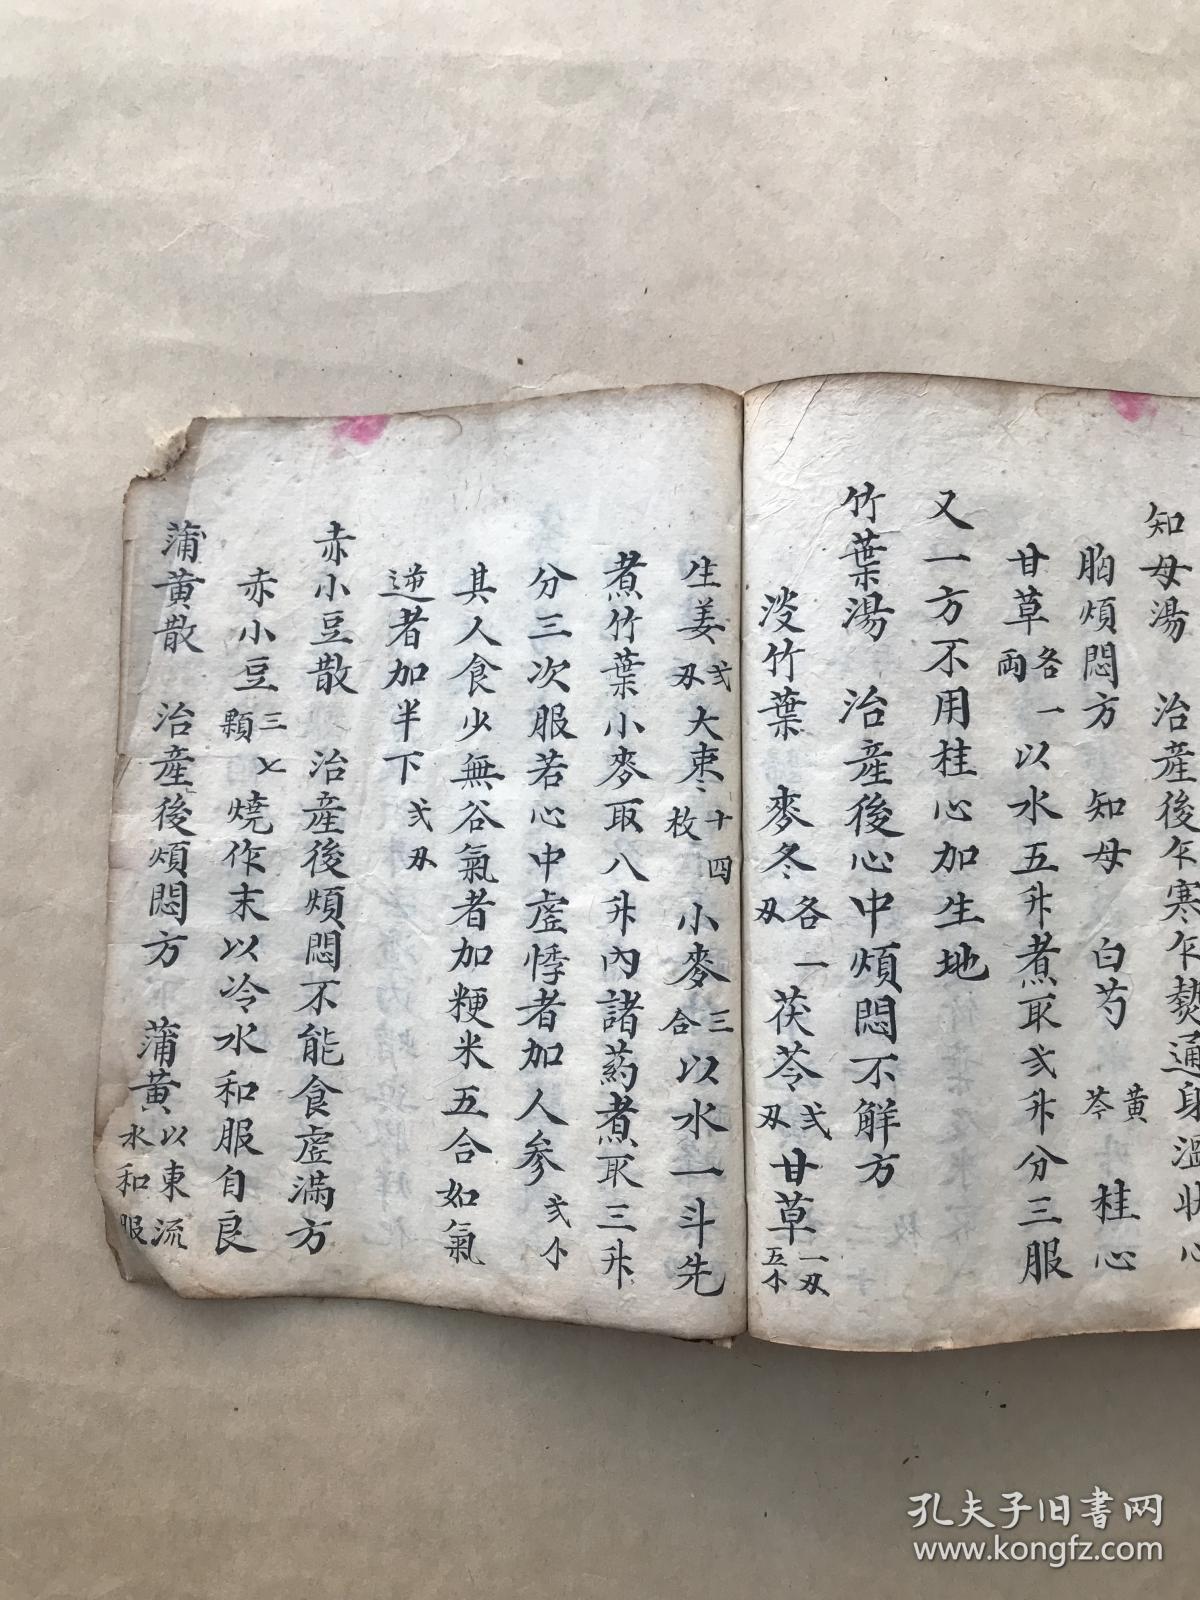 知母湯 治産後乍寒乍熱通身溫壯心
胸煩悶方 知母 白芍 黃芩 桂心
甘草各一両 以水五升煮取弍升分三服
又一方不用桂心加生地
竹葉湯 治産後心中煩悶不解方
淡竹葉 麥冬各一刄 茯苓弍刄 甘草一刄五小
生姜弍刄 大枣十四枚 小麥三合 以水一斗先
煮竹葉小麥取八升內諸药煮取三升
分三次服若心中虛悸者加人参弍小
其人食少無谷氣者加粳米五合如氣
逆者加半下弍刄
赤小豆散 治産後煩悶不能食虛滿方
赤小豆三七顆 燒作末以冷水和服自良
蒲黃散 治産後煩悶方 蒲黃以東流水和服
孔夫子旧书网
www.kongfz.com